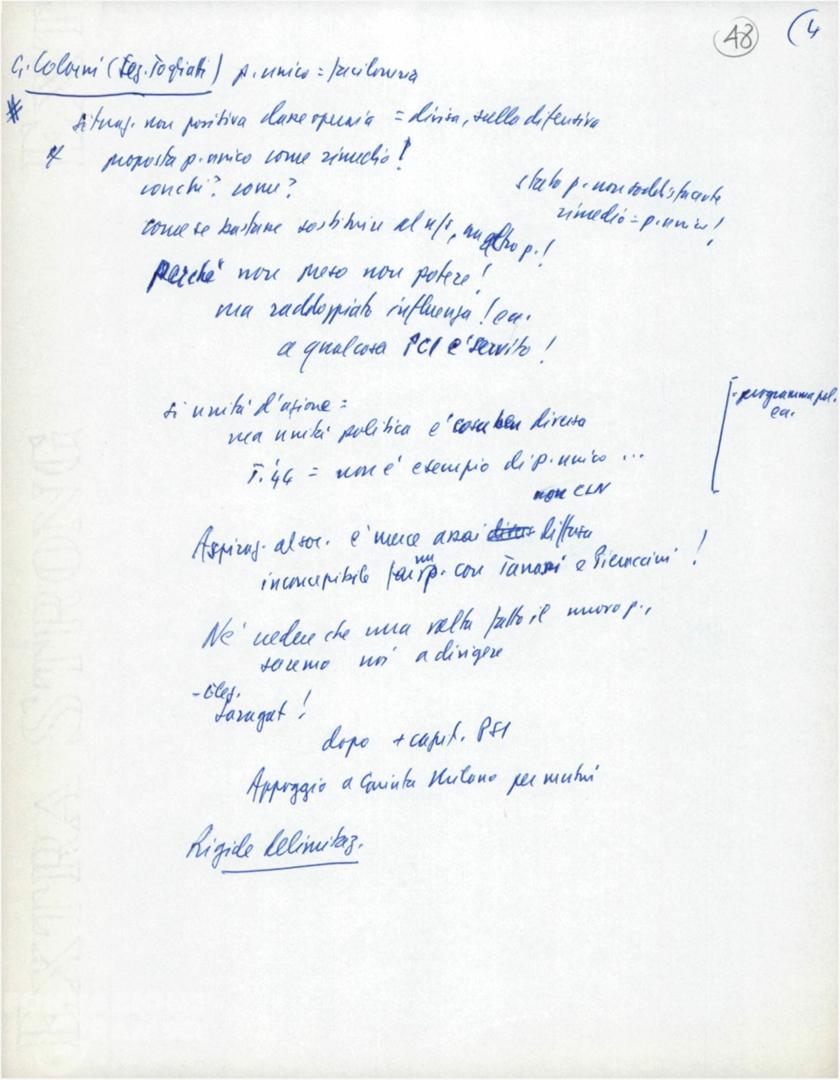 48
(4
G. Colorni (Sez. Togliatti) p. unico = faciloneria
# situaz. non positiva classe operaia = divisa, sulla difensiva
proposta p. unico come rimedio!
con chi? come?
stato p. non soddisfacente
rimedio = p. unico!
come se bastasse sostituire al n/s, un altro p.!
perché non preso non potere!
ma raddoppiato influenza! ecc.
a qualcosa PCI è servito!
sì unità d'azione =
ma unità politica è cosa ben diversa
- programma pol.
ecc.
T. '44 = non è esempio di p. unico ...
non CLN
Aspiraz. al soc. è merce assai diffusa
inconcepibile fare un p. con Tanassi e Pieraccini!
Né vedere che una volta fatto il nuovo p.,
saremo noi a dirigere
- Elez.
Saragat!
dopo + capit. PSI
Appoggio a Giunta Milano per mutui
Rigide delimitaz.